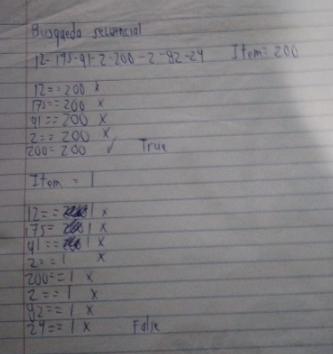 Busqueda secuencial
12-175-91-2-200-2-82-29 Item=200
12==200 x
175==200 x
91==200 x
2==200 x
200=200 ✓ True
Item = 1
12==1 x
175=1 x
91==1 x
2==1 x
200==1 x
2==1 x
82==1 x
29==1 x False